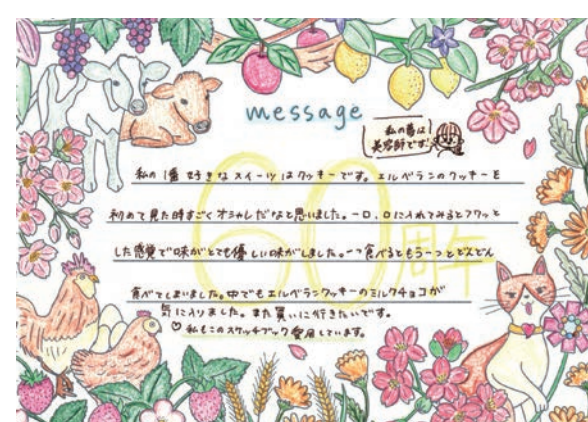 message
私の夢は
美容師です!
私の1番好きなスイーツはクッキーです。エルベランのクッキーを
初めて見た時すごくオシャレだなと思いました。一口、口に入れてみるとフワッと
した感覚で味がとても優しい味がしました。一つ食べるともう一つとどんどん
食べてしまいました。中でもエルベランクッキーのミルクチョコが
気に入りました。また買いに行きたいです。
♡私もこのスケッチブック愛用しています。
60周年